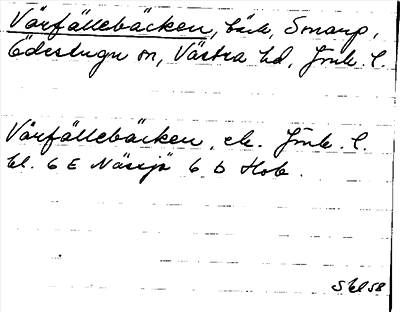 Vårfällebäcken, bäck, Smarp,
Edestugu sn, Västra hd, Jönk. l.
Vårfällebäcken, ek. Jönk. l.
bl. 6 E Nässjö 6 b Hok.
Skl 58